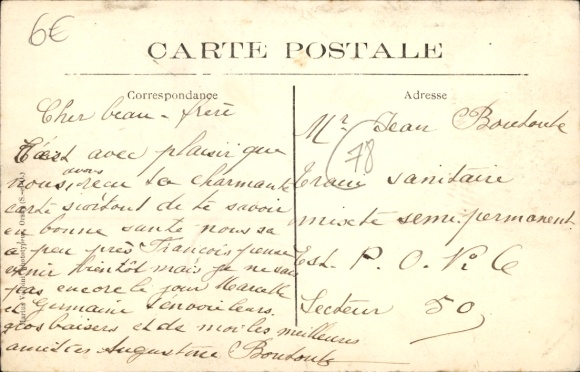 6€
CARTE POSTALE
Correspondance
Adresse
Cher beau-frère
C'est avec plaisir que
nous avons reçu ta charmante
carte surtout de te savoir
en bonne sante nous sa
a peu près François pense
venir bientôt mais je ne sais
pas encore le jour Marcelle
et Germaine t'envoie leurs
gros baisers et de moi les meilleures
amitiés Augustine Boutoute
Mr Jean Boutoute
78
Train sanitaire
mixte semi-permanent
Est. P. O. No 6
Secteur 50